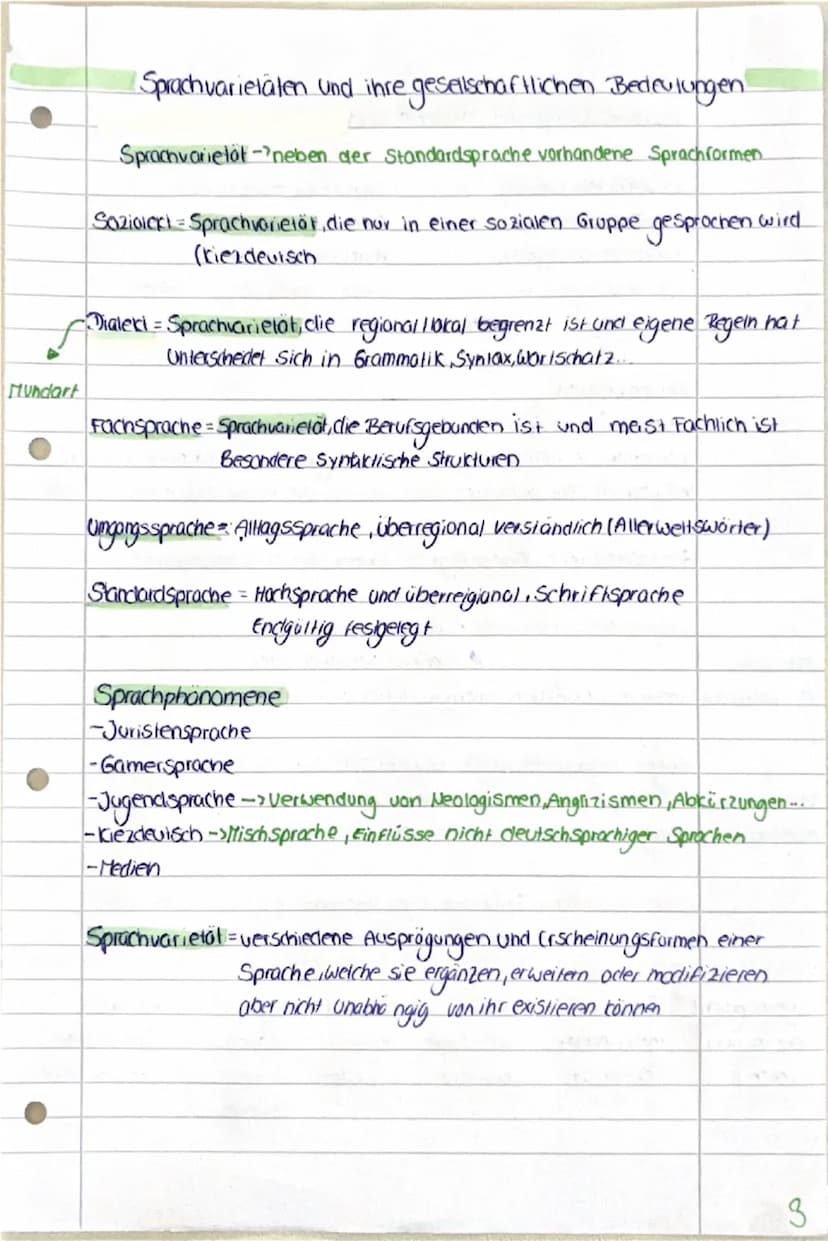 Sprachvarietäten und ihre gesellschaftlichen Bedeutungen
Sprachvarietät → neben der Standardsprache vorhandene Sprachformen
Soziolekt = Sprachvarietät, die nur in einer sozialen Gruppe gesprochen wird
(Kiezdeutsch
Dialekt = Sprachvarietät, die regional/lokal begrenzt ist und eigene Regeln hat
Unterscheidet sich in Grammatik, Syntax, Wortschatz...
Mundart
Fachsprache = Sprachvarietät, die Berufsgebunden ist und meist Fachlich ist
Besondere Syntaktische Strukturen
Umgangssprache = Alltagssprache, überregional verständlich (Allerweltswörter)
Standardsprache = Hochsprache und überreigional, Schriftsprache
Endgültig festgelegt
Sprachphänomene
- Juristensprache
- Gamersprache
- Jugendsprache → Verwendung von Neologismen, Anglizismen, Abkürzungen...
- Kiezdeutsch → Mischsprache, Einflüsse nicht deutschsprachiger Sprachen
- Medien
Sprachvarietät = verschiedene Ausprägungen und Erscheinungsformen einer
Sprache, welche sie ergänzen, erweitern oder modifizieren
aber nicht unabhängig von ihr existieren können
3